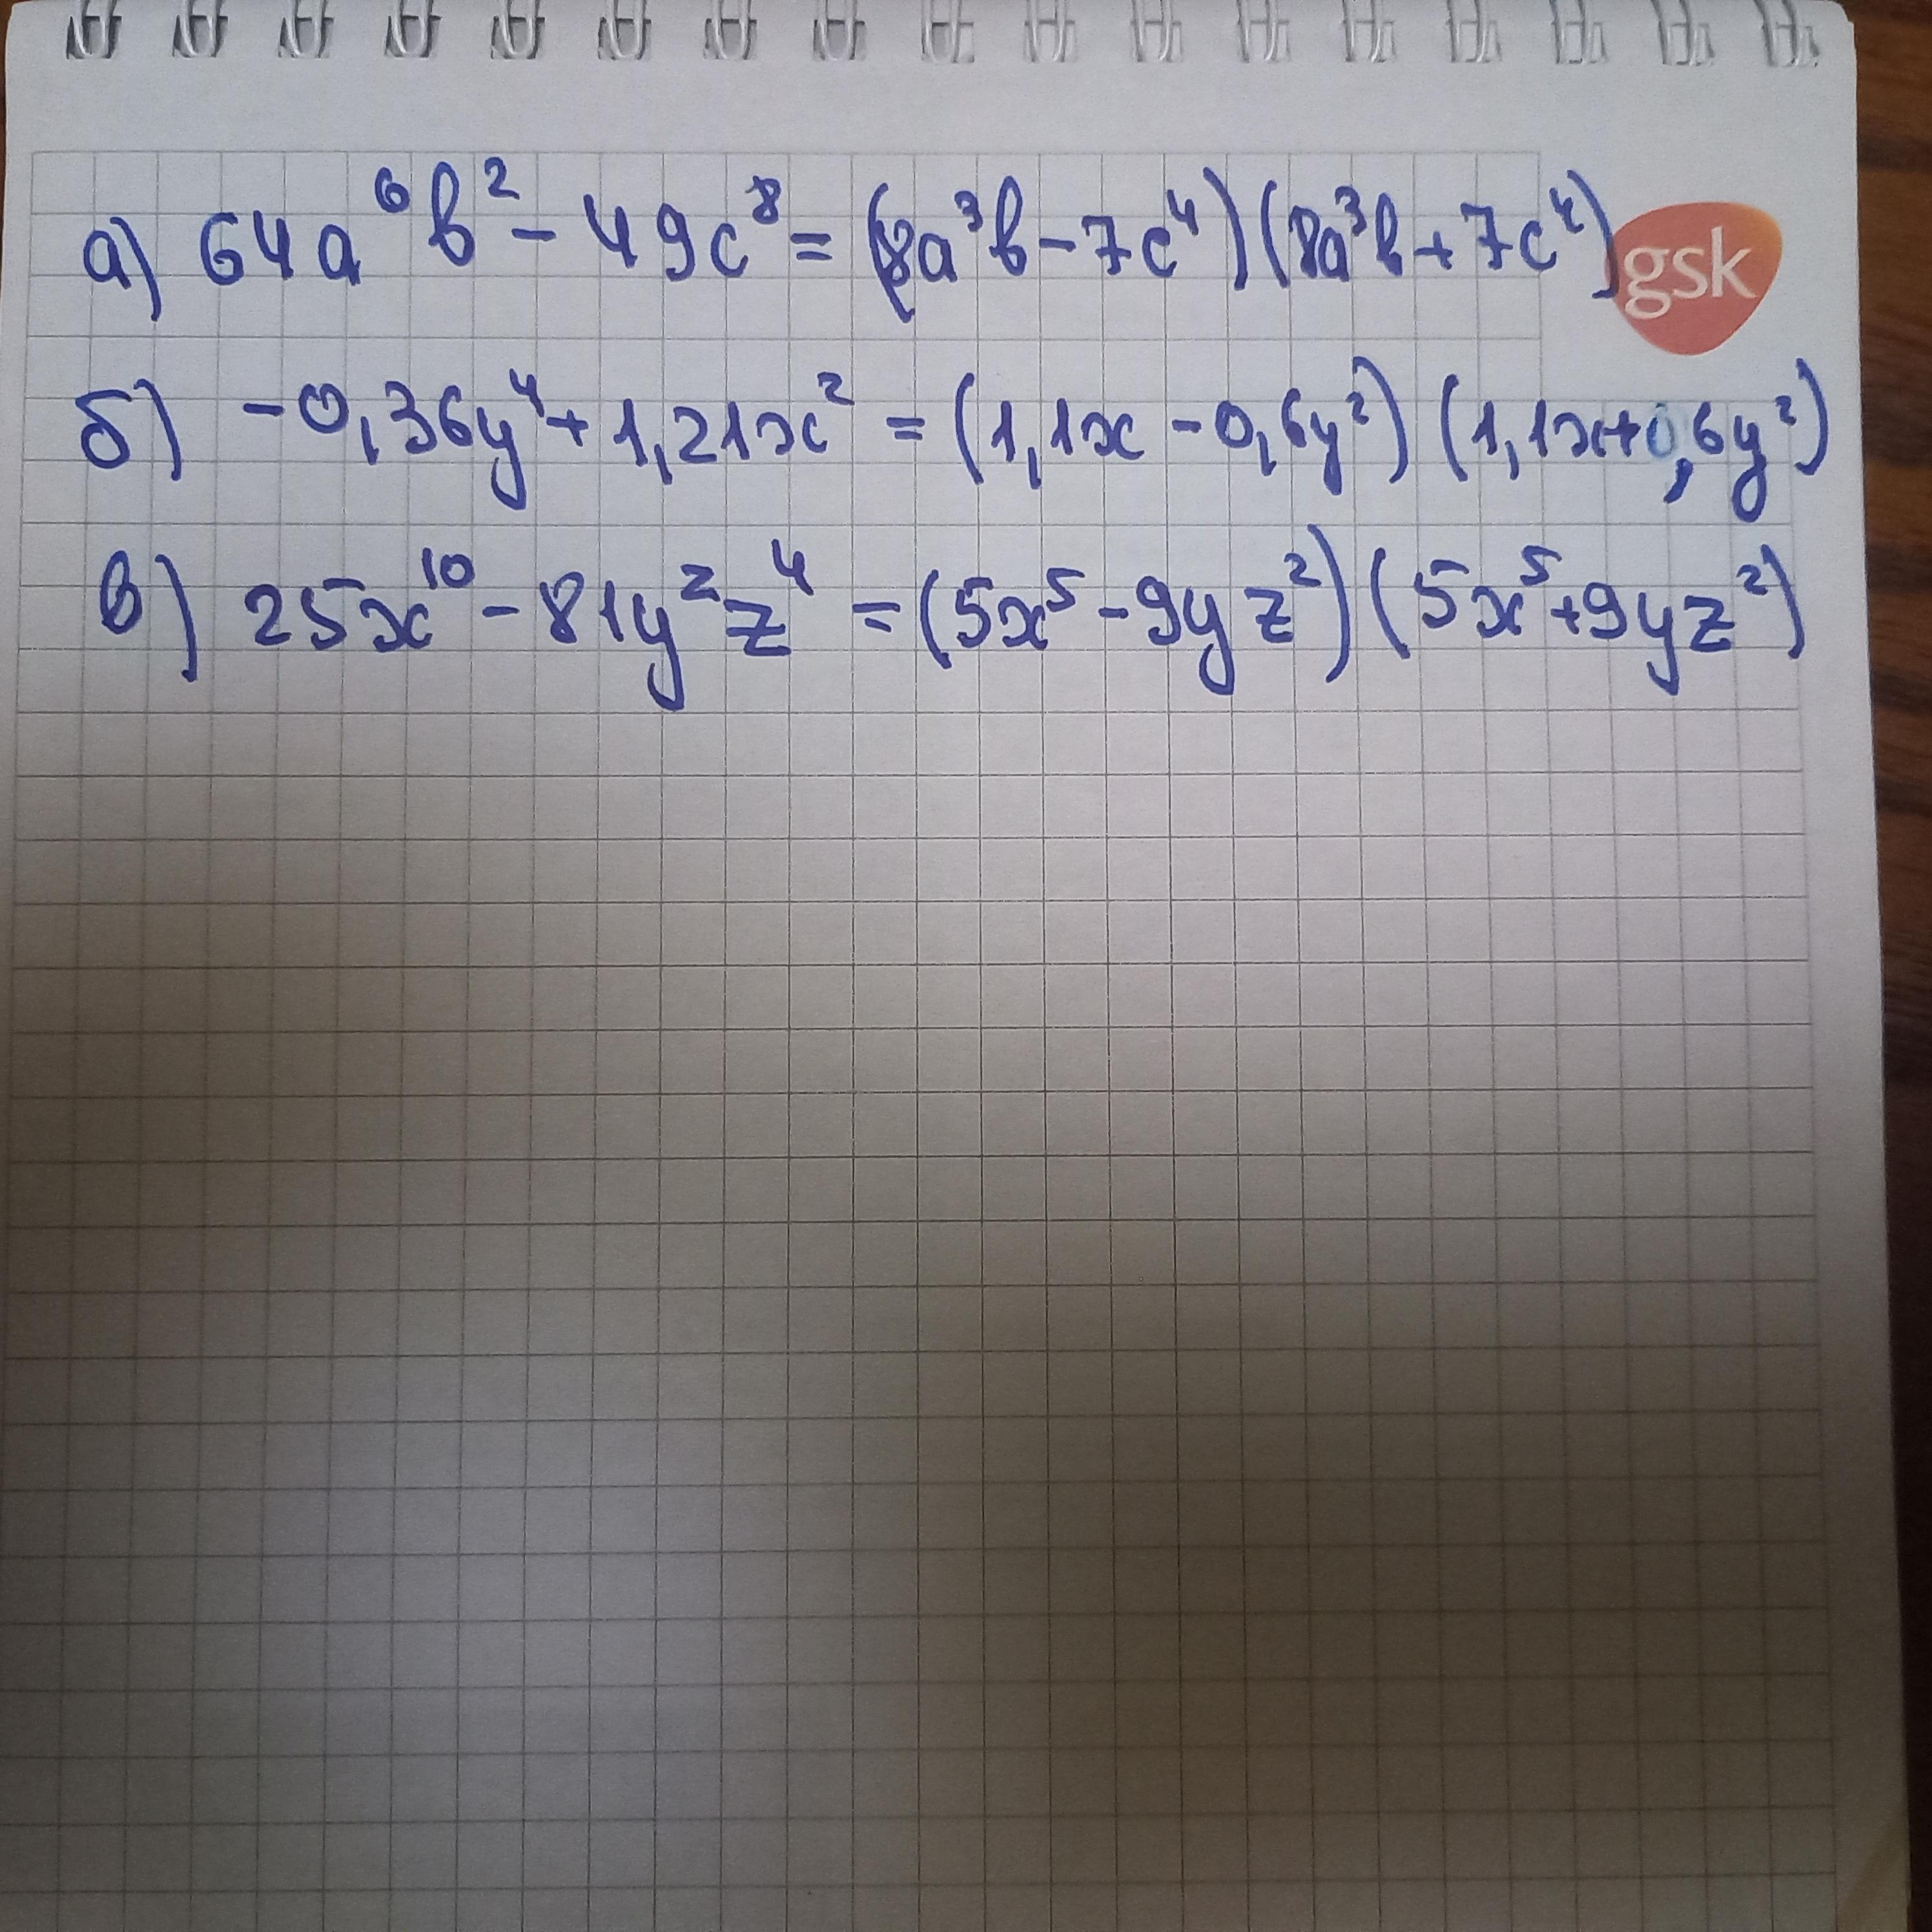 а) 64a⁶b² - 49c⁸ = (8a³b - 7c⁴)(8a³b + 7c⁴)
gsk
б) -0,36y⁴ + 1,21x² = (1,1x - 0,6y²)(1,1x + 0,6y²)
в) 25x¹⁰ - 81y²z⁴ = (5x⁵ - 9yz²)(5x⁵ + 9yz²)